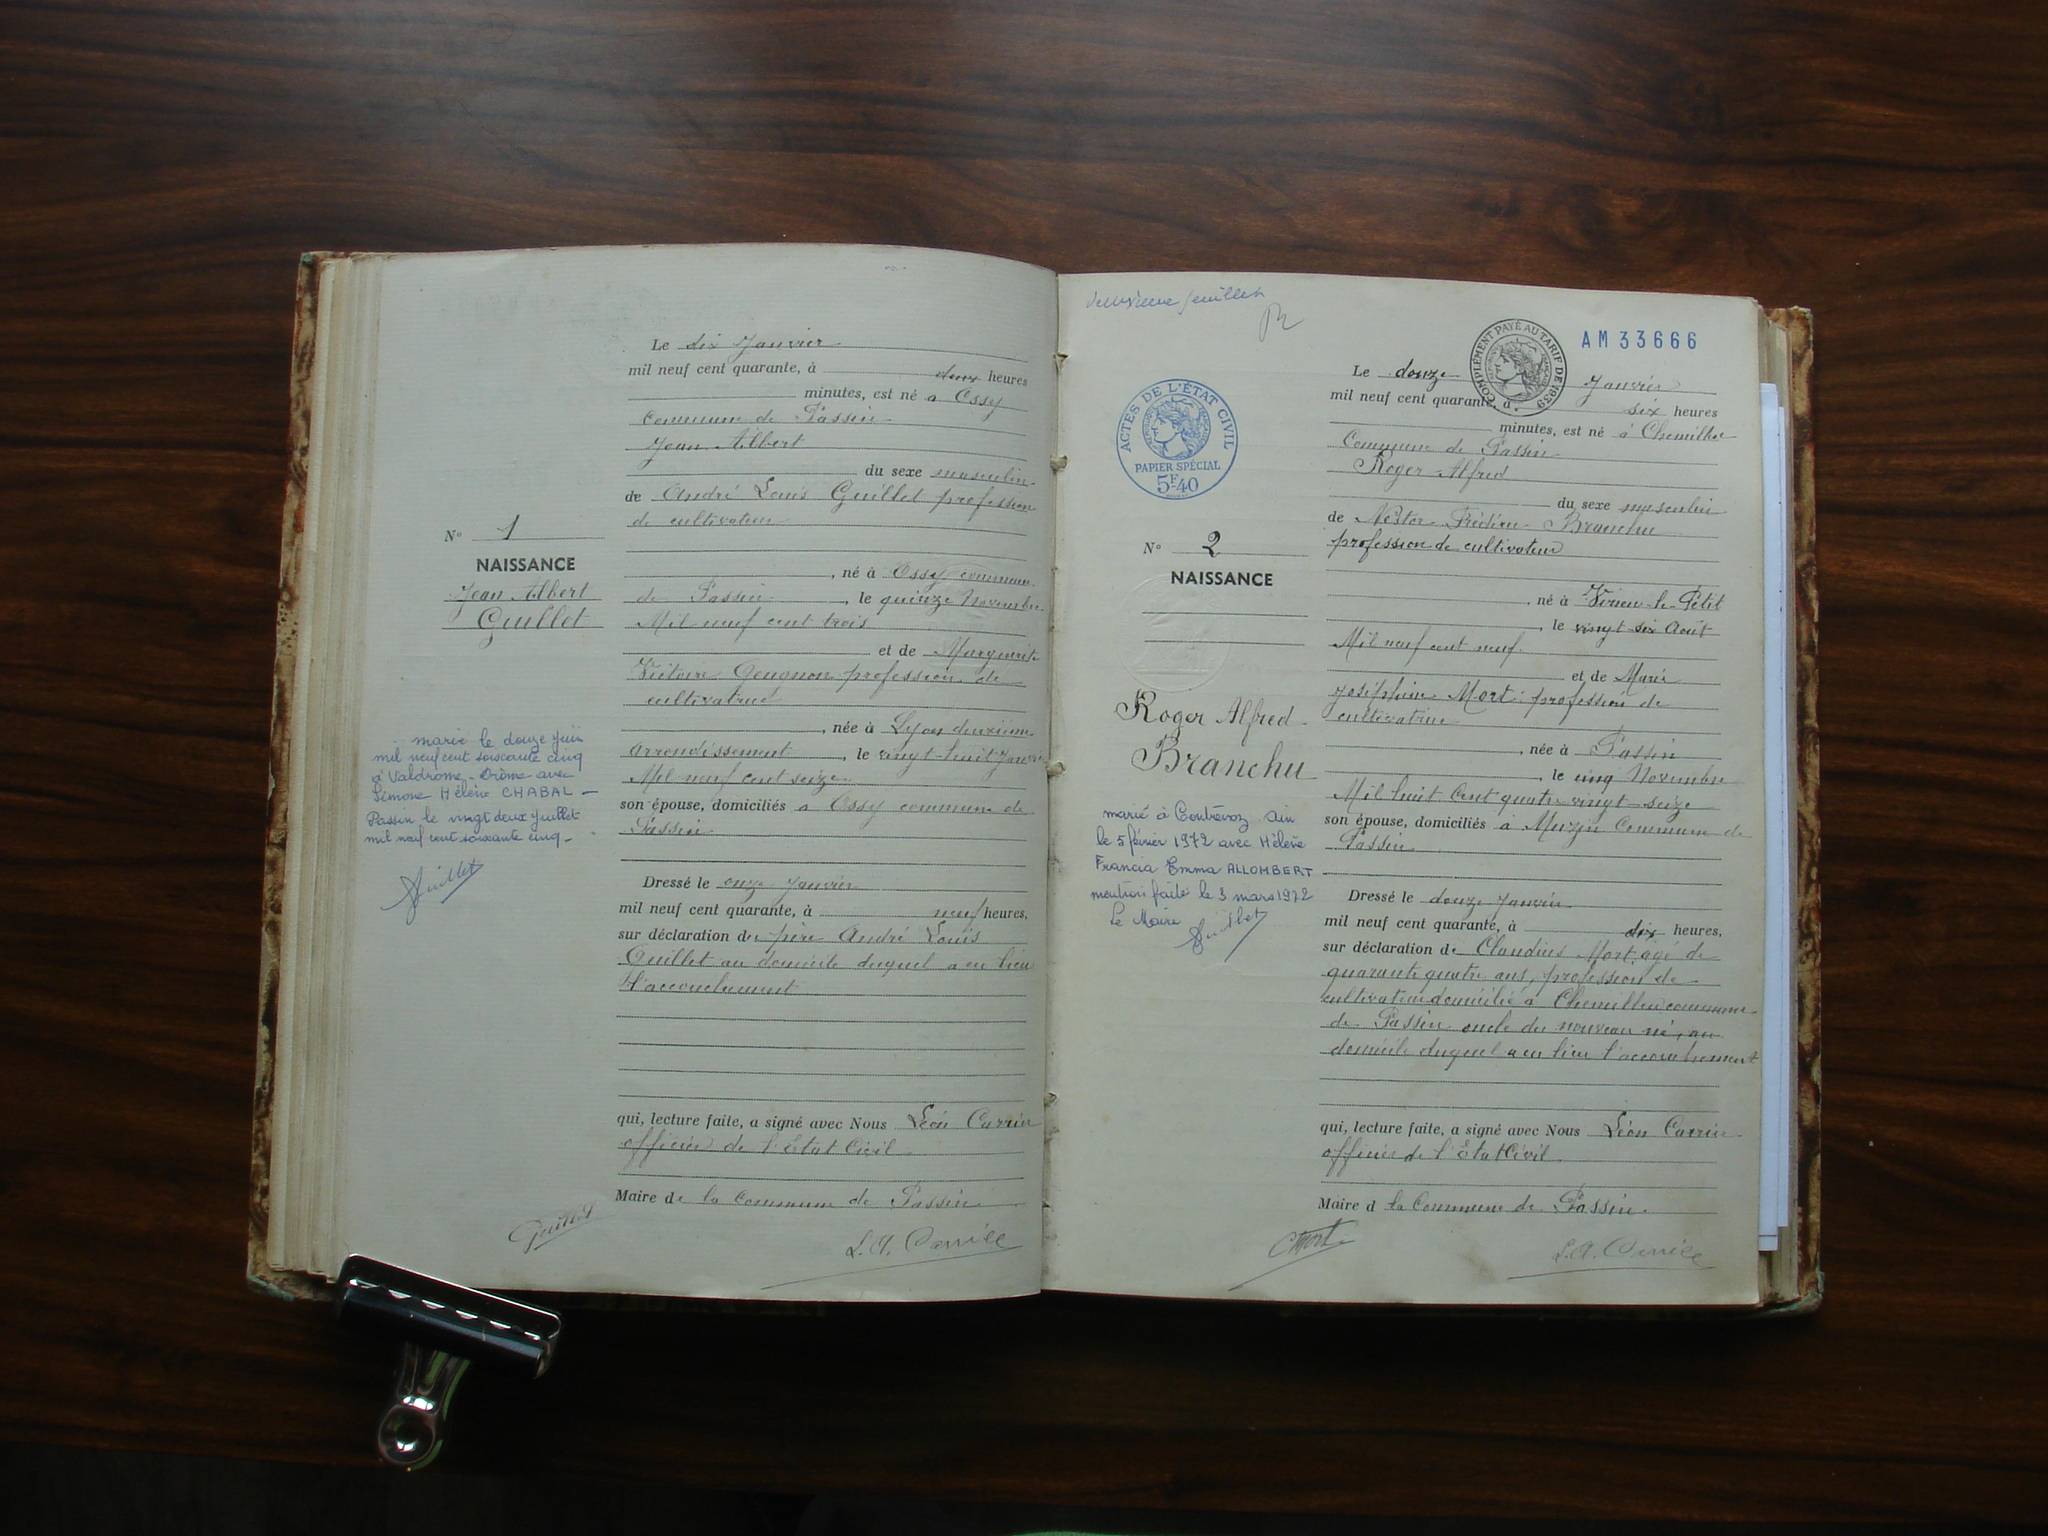 Le dix Janvier
mil neuf cent quarante, à deux heures
minutes, est né à Ossy
Commune de Passin
Jean Albert
du sexe masculin
de André Louis Guillet profession
de cultivateur
N° 1
NAISSANCE
Jean Albert
Guillet
, né à Ossy commune
de Passin , le quinze Novembre
Mil neuf cent trois
et de Marguerite
Victoire profession de
cultivatrice
, née à Lyon deuxième
arrondissement , le vingt huit Janvier
Mil neuf cent seize
son épouse, domiciliés à Ossy commune de
Passin
marié le douze juin
mil neuf cent soixante cinq
à Valdrome - Drôme avec
Simone Hélène CHABAL -
Passin le vingt deux juillet
mil neuf cent soixante cinq -
Guillet
Dressé le onze Janvier
mil neuf cent quarante, à neuf heures,
sur déclaration du père André Louis
Guillet au domicile duquel a eu lieu
l'accouchement
qui, lecture faite, a signé avec Nous Léon Carrier
officier de l'Etat Civil
Maire de la Commune de Passin
Guillet
deuxième feuillet
COMPLÉMENT PAYÉ AU TARIF DE 1939
AM 33666
ACTES DE L'ÉTAT CIVIL
PAPIER SPÉCIAL
5F40
Le douze Janvier
mil neuf cent quarante, à six heures
minutes, est né à Chemillieu
Commune de Passin
Roger Alfred
du sexe masculin
de Nestor Branchu
profession de cultivateur
N° 2
NAISSANCE
Roger Alfred
Branchu
, né à Virieu-le-Petit
, le vingt six Août
Mil neuf cent neuf
et de Marie
Joséphine Mort profession de
cultivatrice
, née à Passin
, le cinq Novembre
Mil huit cent quatre vingt seize
son épouse, domiciliés à Commune de
Passin
marié à Contrevoz Ain
le 5 février 1972 avec Hélène
Francia Emma ALLOMBERT
mention faite le 3 mars 1972
Le Maire Guillet
Dressé le douze Janvier
mil neuf cent quarante, à dix heures,
sur déclaration de Claudius Mort âgé de
quarante quatre ans, profession de
cultivateur domicilié à Chemillieu commune
de Passin oncle du nouveau né, au
domicile duquel a eu lieu l'accouchement
qui, lecture faite, a signé avec Nous Léon Carrier
officier de l'Etat Civil
Maire d la Commune de Passin
CMort